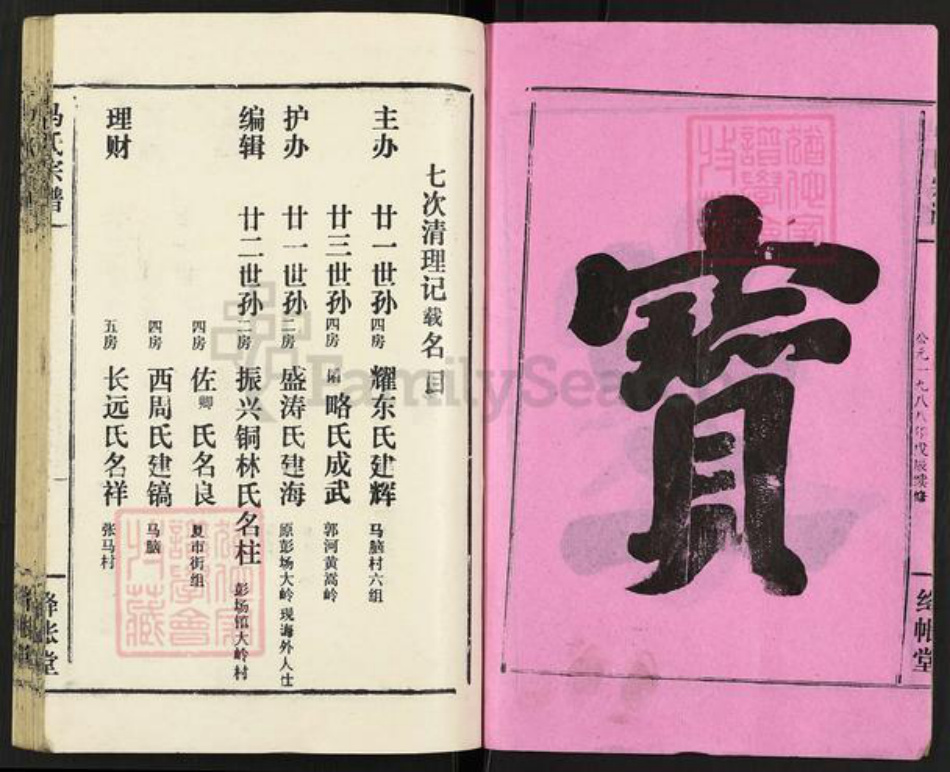 寶
公元一九八八年戊辰续修
绛帐堂
七次清理记载名目
主办 廿一世孙 四房 耀东氏建辉 马脑村六组
廿三世孙 四房 略氏成武 郭河黄嵩岭
护办 廿一世孙 二房 盛涛氏建海 原彭场大岭 现海外人士
编辑 廿二世孙 二房 振兴铜林氏名柱 彭场镇大岭村
四房 佐卿氏名良 夏市街组
四房 西周氏建镐 马脑
理财 五房 长远氏名祥 张马村
马氏宗谱
绛帐堂
FamilySearch